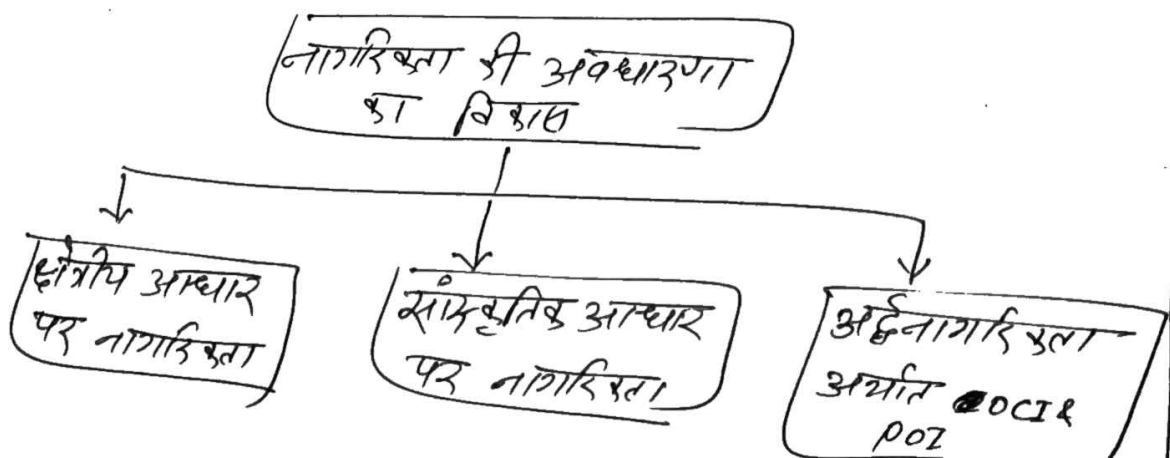 नागरिकता की अवधारणा
का विकास
क्षेत्रीय आधार
पर नागरिकता
सांस्कृतिक आधार
पर नागरिकता
अर्द्धनागरिकता
अर्थात OCI &
POI